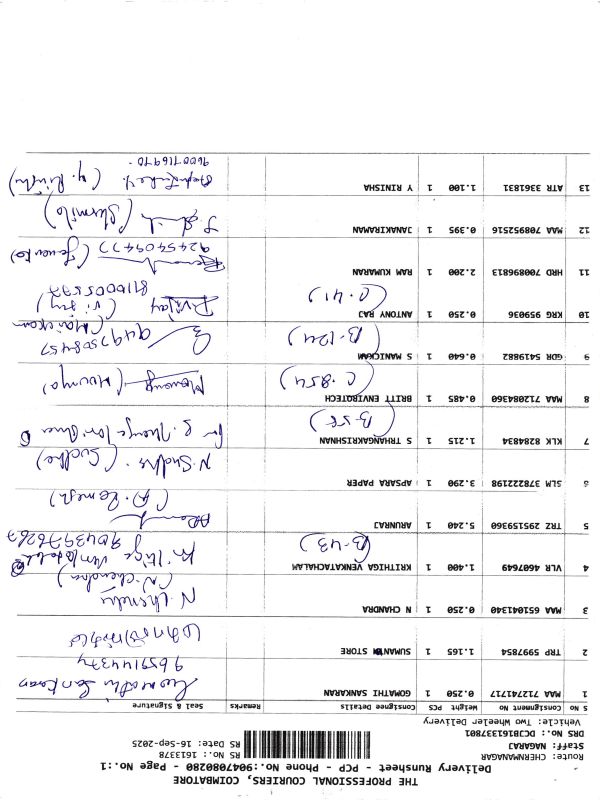 THE PROFESSIONAL COURIERS, COIMBATORE
Delivery Runsheet - PCP - Phone No.:9047080280 - Page No.:1
Route: CHERMANAGAR
Staff: NAGARAJ
DRS No.: DCPCB161337801
Vehicle: Two Wheeler Delivery
RS No.: 1613378
RS Date: 16-Sep-2025
S No Consignment No Weight PCS Consignee Details Remarks Seal & Signature
1 MAA 712741717 0.250 1 GOMATHI SANKARAN Gomathi Sankaran
9659144374
2 TRP 5997854 1.165 1 SUMANTH STORE
3 MAA 651041340 0.250 1 N CHANDRA N. Chandra
(N. chendra)
4 VLR 4607649 1.400 1 KRITHIGA VENKATACHALAM (B-43)
9043976267
5 TRZ 295159360 5.240 1 ARUNRAJ
(A. Ramesh)
6 SLM 378227198 3.290 1 APSARA PAPER N. Sudha. (Sudha)
7 KLK 8284834 1.215 1 S THANGAKRISHNAN (B-58)
8 MAA 712084360 0.485 1 BRITT ENVIROTECH (C-854) (Mouniya)
9 GDR 5419882 0.640 1 S MANICKAM (B-124) 9497508457
(Manickam)
10 KRG 959036 0.250 1 ANTONY RAJ (C-41) Vijay (Vijay)
8110005597
11 HRD 700896813 2.200 1 RAM KUMARAN
9245409477
12 MAA 708952516 0.395 1 JANAKIRAMAN (Sharmila)
13 ATR 3361831 1.100 1 Y RINISHA (Y. Rinisha)
9600716970